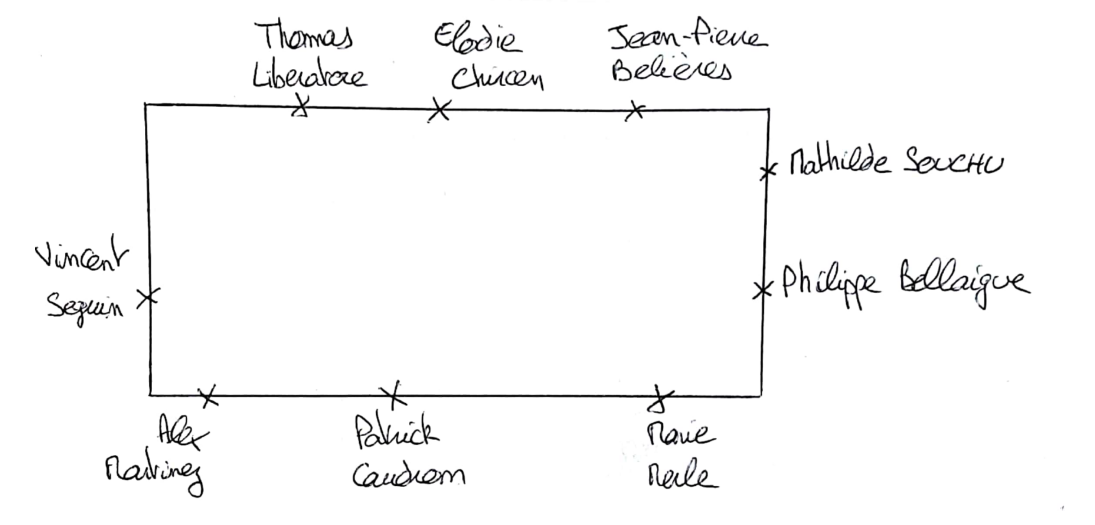 Thomas
Liberatore
Elodie
Chircen
Jean-Pierre
Belières
Mathilde SOUCHU
Philippe Bellaigue
Vincent
Seguin
Alex
Martinez
Patrick
Caudrem
Marie
Merle